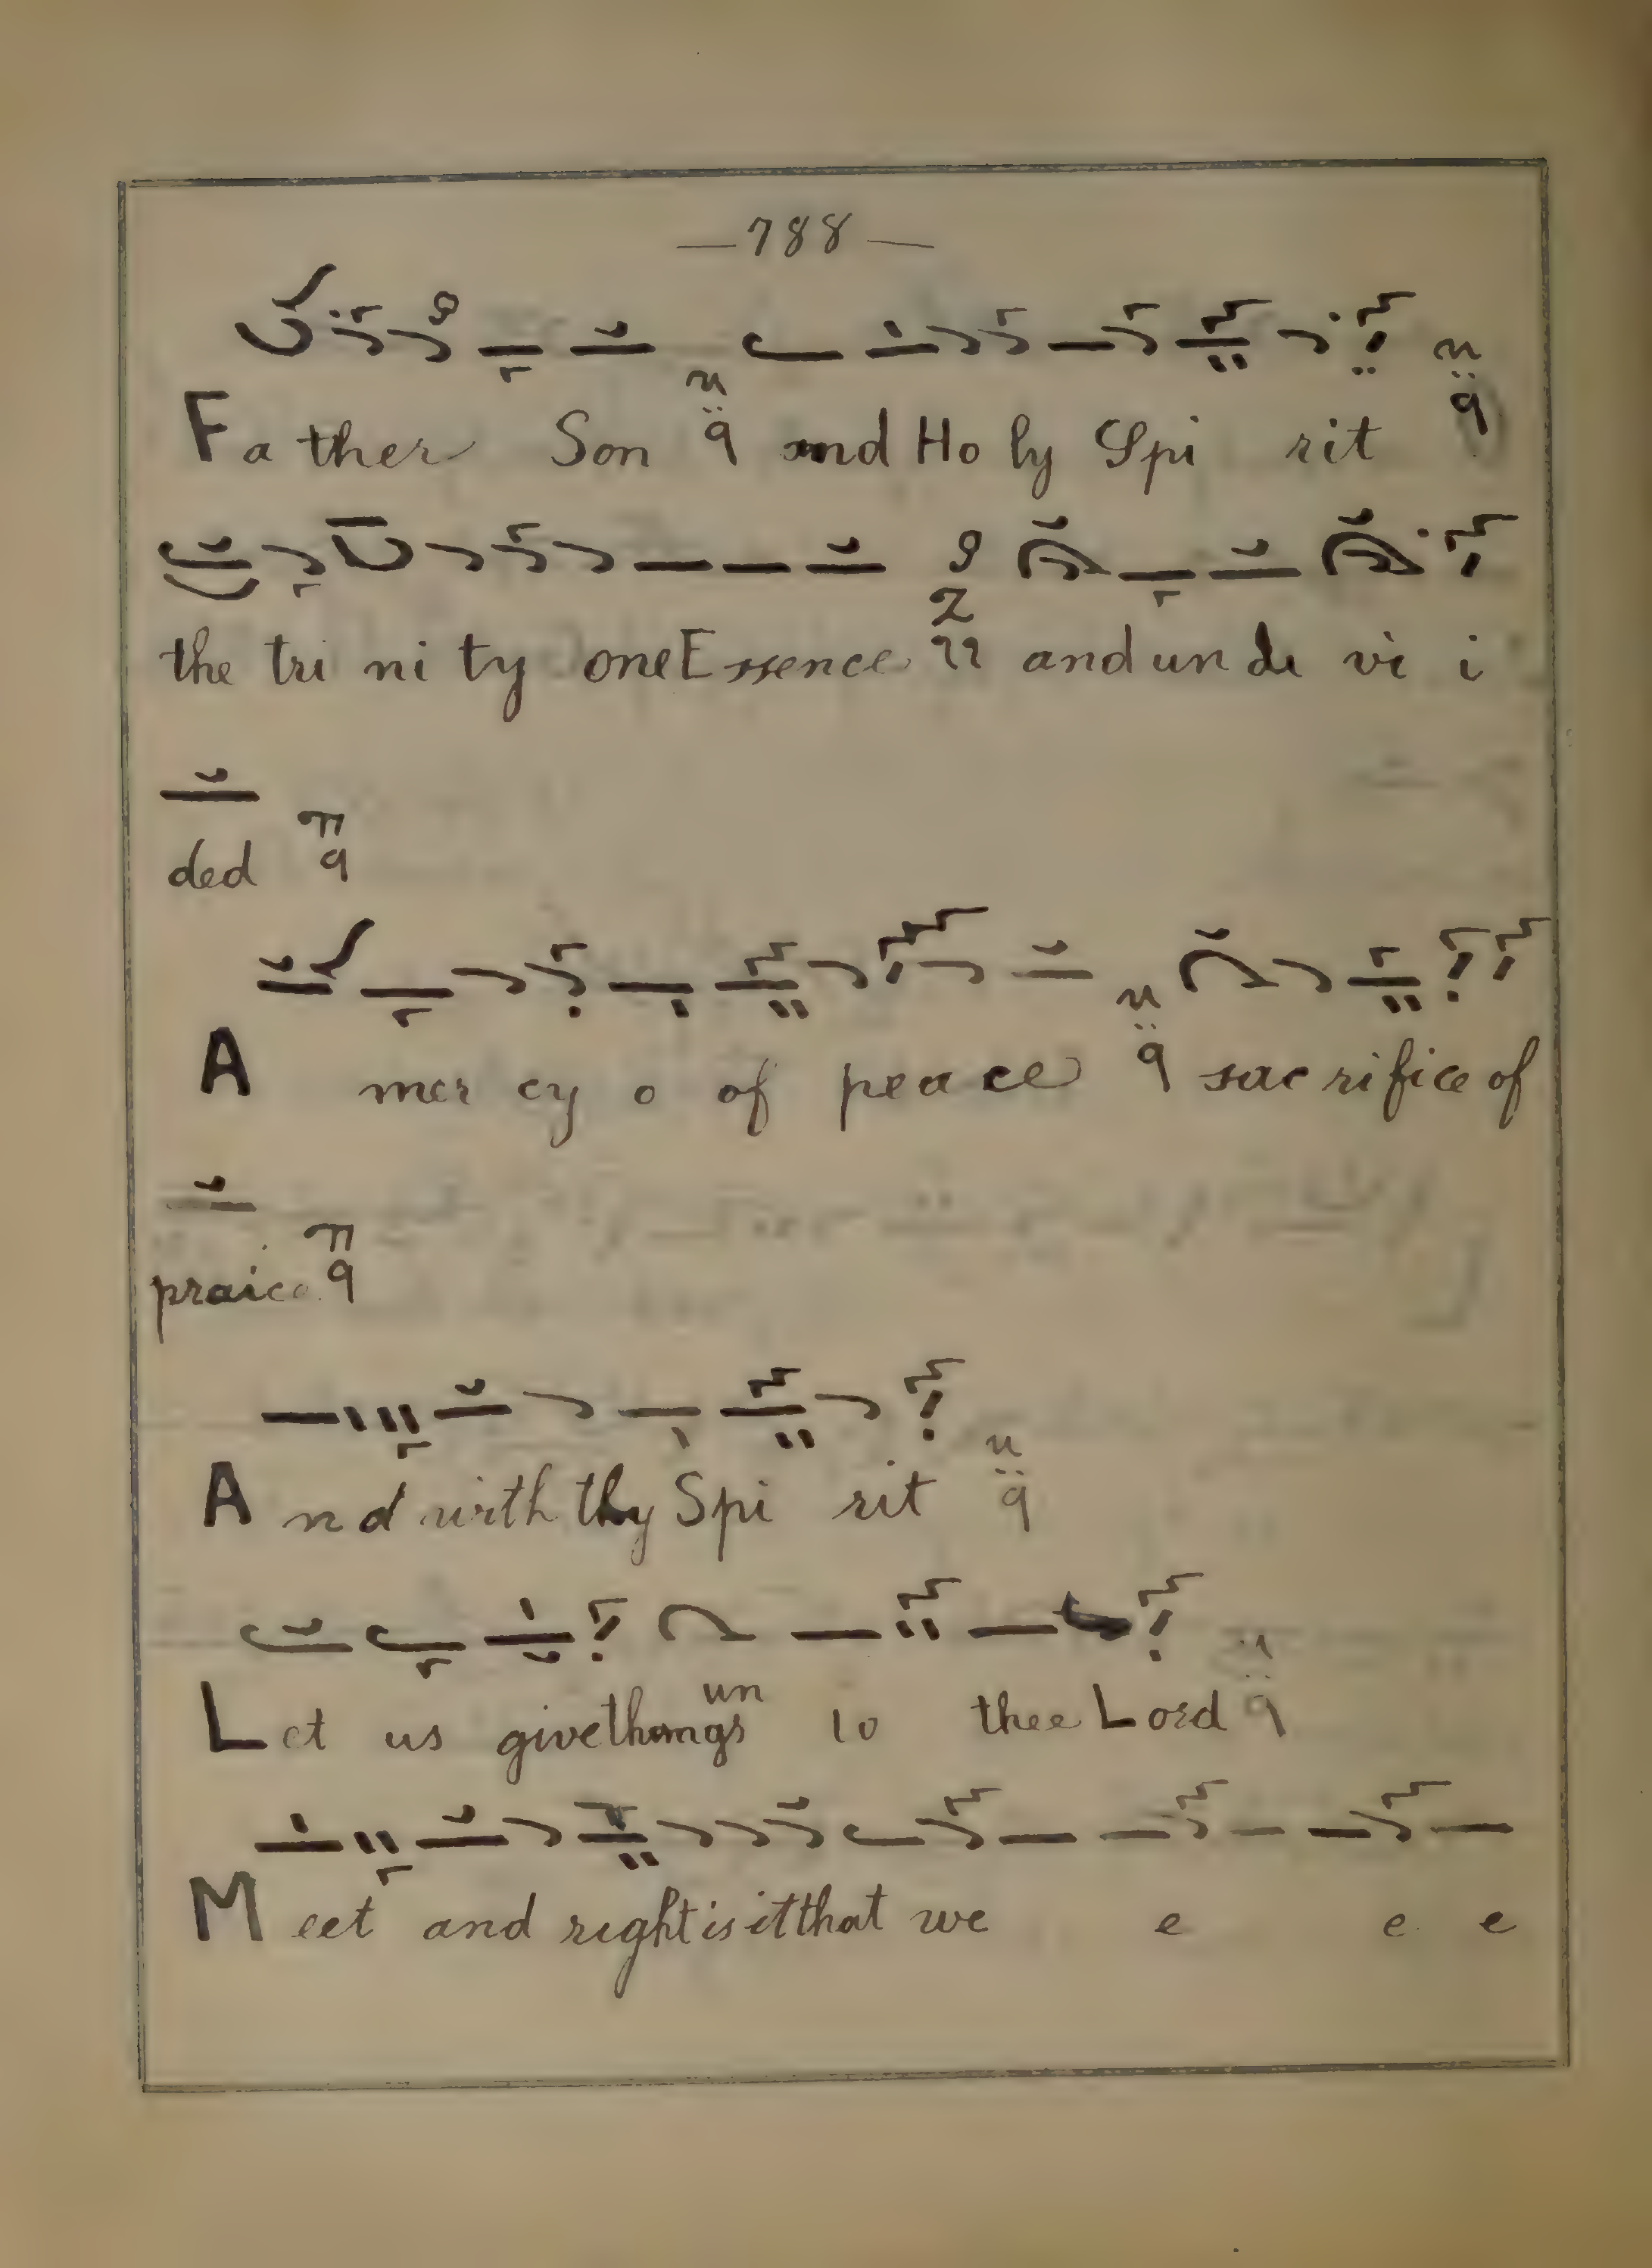 —788—
Fa ther Son q and Ho ly Spi rit q
the tri ni ty one Essence and un de vi i
ded q
A mer cy o of peace q sac rifice of
praice q
A nd with thy Spi rit q
un
Let us give to thee Lord q
M eet and right is it that we e e e